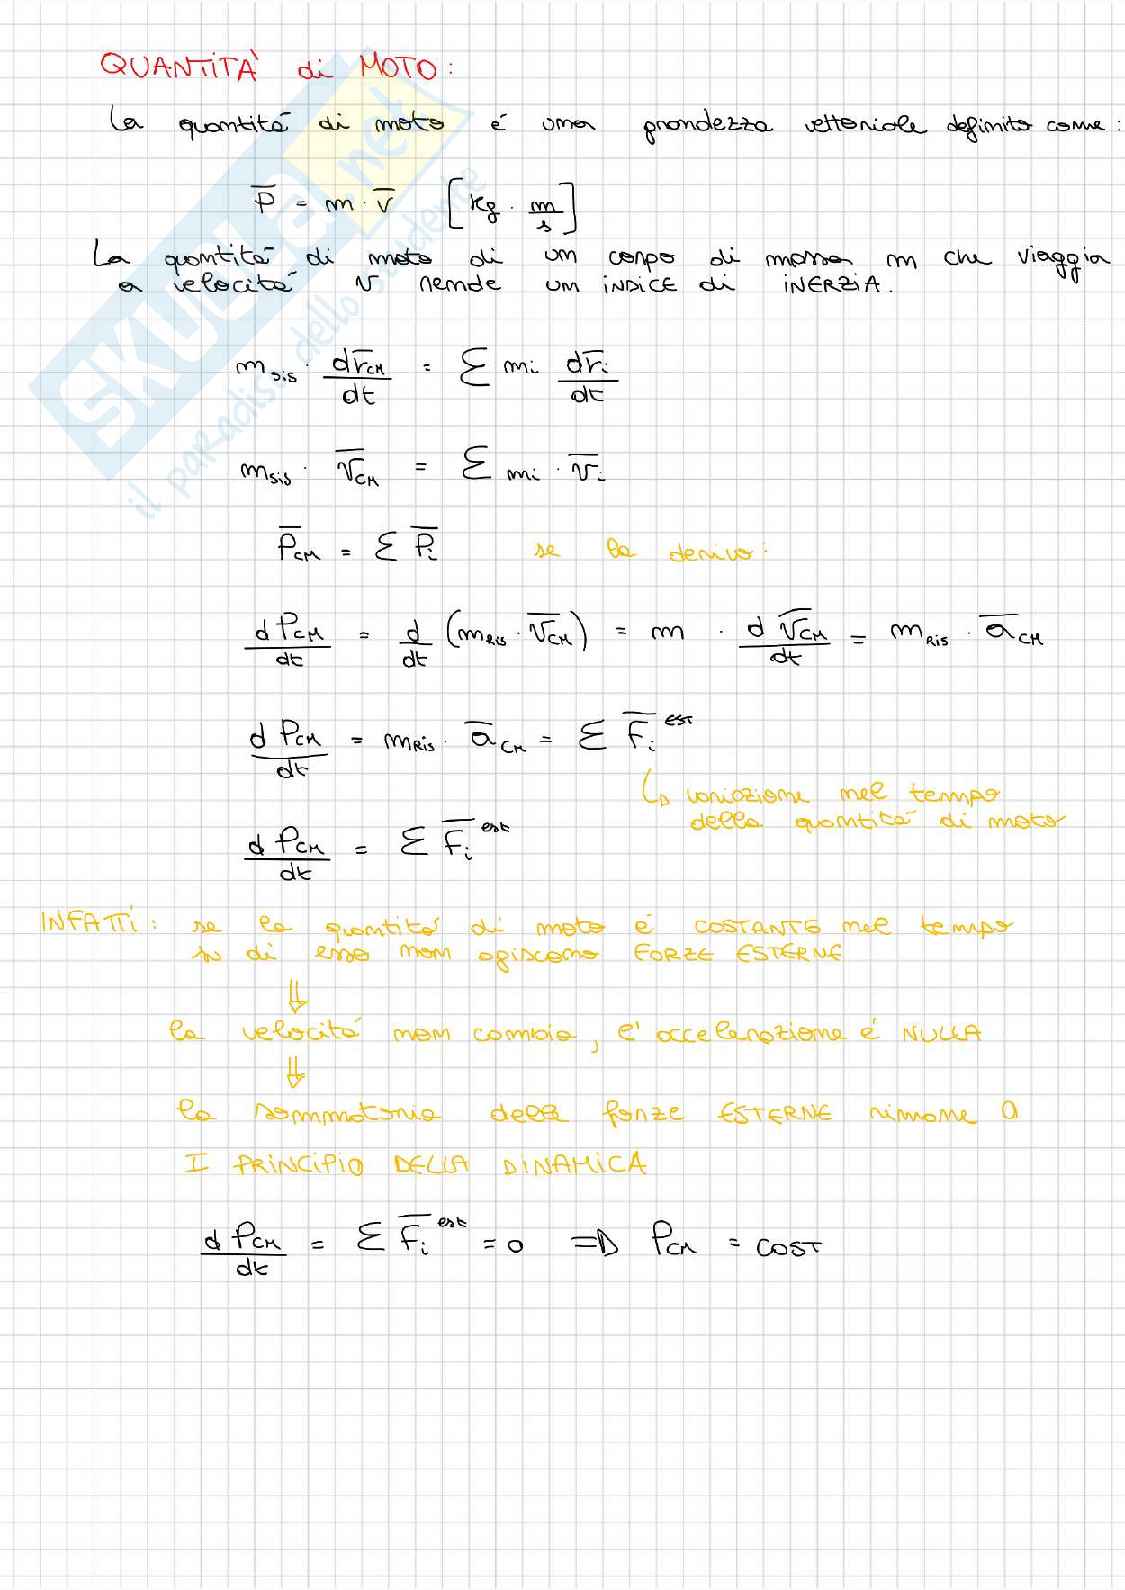 QUANTITÀ di MOTO:
La quantitá di moto é una grandezza vettoriale definito come:
P̅ = m · v̅ [kg · m/s]
La quantitá di moto di un corpo di massa m che viaggia
a velocitá v rende un INDICE di INERZIA.
m_sis · dr̅_CM/dt = Σ mi dr̅_i/dt
m_sis · v̅_CM = Σ mi · v̅_i
P̅_CM = Σ P̅_i se la derivo:
dP_CM/dt = d/dt (m_RIS · v̅_CM) = m · d v̅_CM/dt = m_RIS · a̅_CM
dP_CM/dt = m_RIS · a̅_CM = Σ F̅_i^EST
↳ variazione nel tempo
della quantitá di moto
dP_CM/dt = Σ F̅_i^est
INFATTI: se la quantitá di moto é COSTANTE nel tempo
su di essa non agiscono FORZE ESTERNE
⇓
la velocitá non cambia, l'accelerazione é NULLA
⇓
la sommatoria delle forze ESTERNE rimane 0
I PRINCIPIO DELLA DINAMICA
dP_CM/dt = Σ F̅_i^est = 0 ⇒ P_CM = COST
SKUOLA.net
il paradiso dello studente